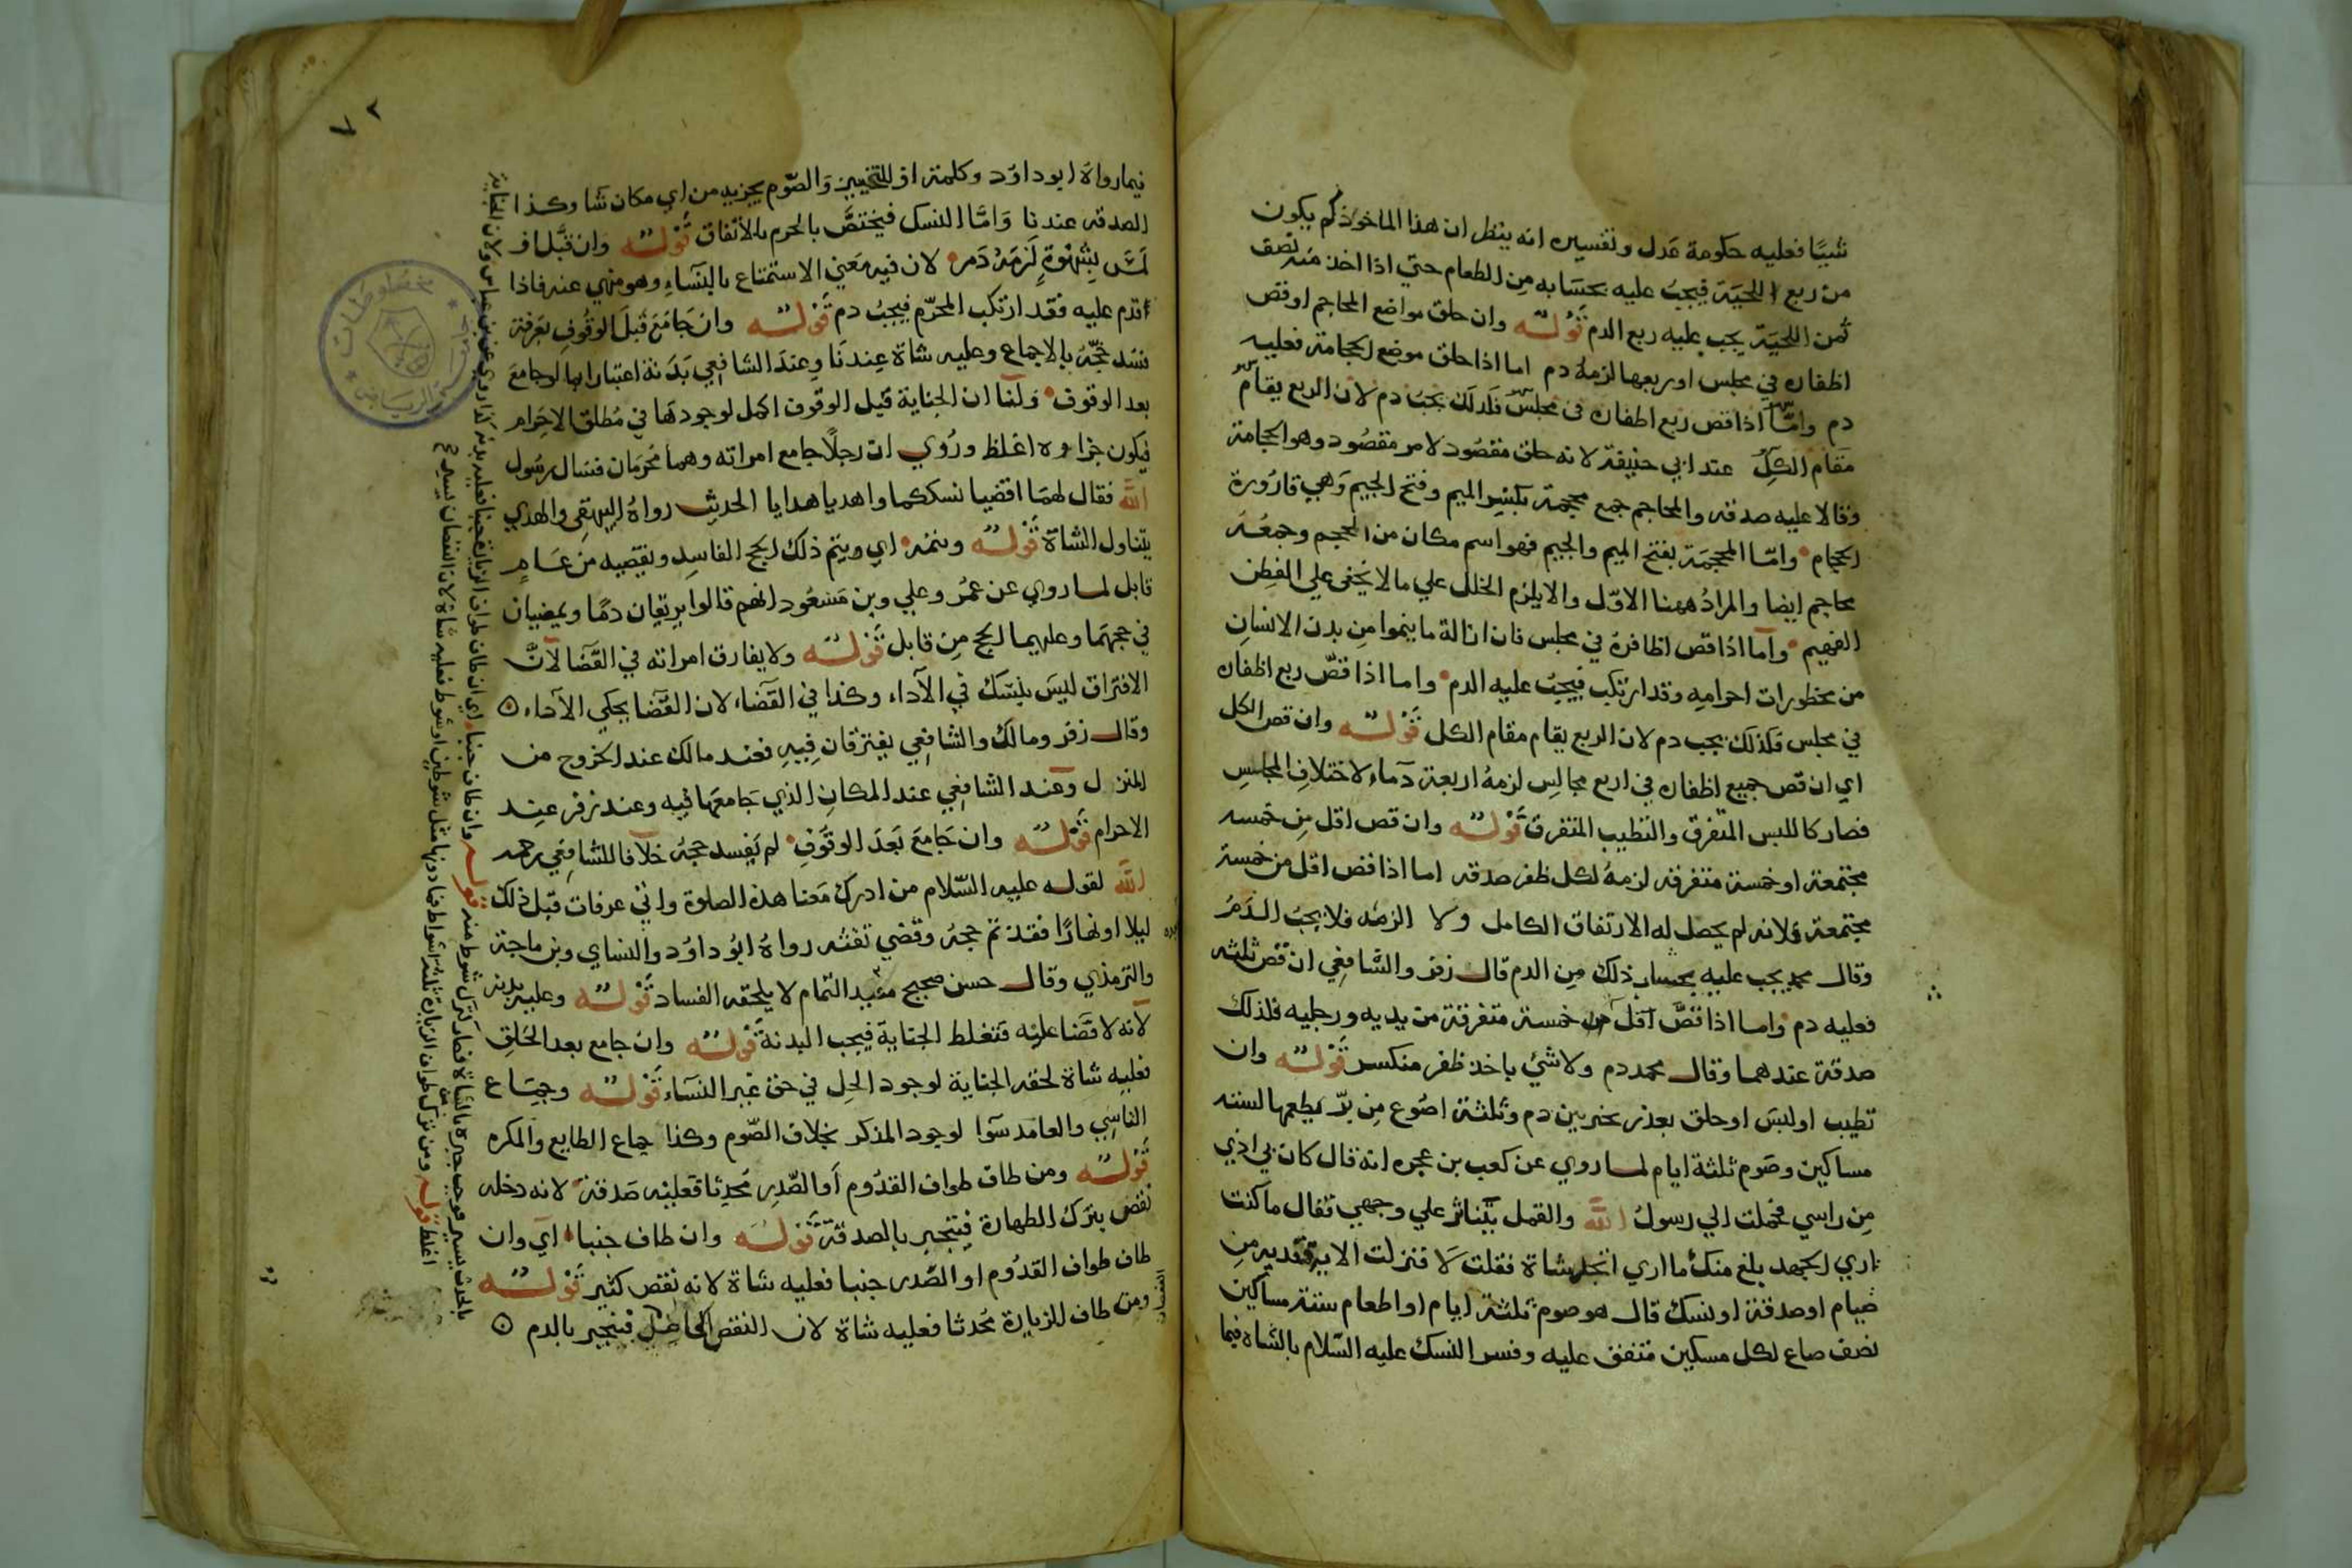 شيئا فعليه حكومة عدل وتفسيره انه ينظر ان هذا الماخوذ كم يكون
من ربع اللحية فيجب عليه بحسابه من الطعام حتي اذا اخذ منه نصف
ثمن اللحية يجب عليه ربع الدم قوله وان حلق مواضع المحاجم او قص
اظفاره في مجلس او ربعها لزمه دم اما اذا حلق موضع الحجامة فعليه
دم واما اذا قص ربع اظفاره في مجلس فلذلك يجب دم لان الربع يقام
مقام الكل عند ابي حنيفة لانه حلق مقصود لامر مقصود وهو الحجامة
وقالا عليه صدقة والمحاجم جمع محجمة بكسر الميم وفتح الجيم وهي قارورة
الحجام واما المحجمة بفتح الميم والجيم فهو اسم مكان من الحجم وجمعه
محاجم ايضا والمراد ههنا الاول والا يلزم الخلل علي ما لا يخفى علي الفطن
الفهيم واما اذا قص اظافره في مجلس فان ازالة ما ينموا من بدن الانسان
من محظورات احرامه وقد ارتكب فيجب عليه الدم واما اذا قص ربع اظفاره
في مجلس فكذلك يجب دم لان الربع يقام مقام الكل قوله وان قص الكل
اي ان قص جميع اظفاره في اربع مجالس لزمه اربعة دماء لاختلاف المجلس
فصار كاللبس المتفرق والتطيب المتفرق قوله وان قص اقل من خمسه
مجتمعة او خمسة متفرقه لزمه لكل ظفر صدقه اما اذا قص اقل من خمسة
مجتمعة فلانه لم يحصل له الارتفاق الكامل ولا الزينه فلا يجب الدم
وقال محمد يجب عليه بحساب ذلك من الدم قال زفر والشافعي ان قص ثلثه
فعليه دم واما اذا قص اقل من خمسة متفرقة من يديه ورجليه فلذلك
صدقة عندهما وقال محمد دم ولا شئ باخذ ظفر منكسر قوله وان
تطيب او لبس او حلق بعذر خير بين دم وثلثة اصوع من بر يطعمها لستة
مساكين وصوم ثلثة ايام لما روي عن كعب بن عجره انه قال كان بي اذي
من راسي فحملت الي رسول الله والقمل يتناثر علي وجهي فقال ما كنت
اري الجهد بلغ منك ما اري اتجد شاة فقلت لا فنزلت الاية ففدية من
صيام او صدقة او نسك قال هو صوم ثلثة ايام او اطعام ستة مساكين
نصف صاع لكل مسكين متفق عليه وفسر النسك عليه السلام بالشاة فيما
٧٢
فيما رواه ابو داود وكلمة او للتخيير والصوم يجزيه من اي مكان شا وكذا
الصدقه عندنا واما النسك فيختص بالحرم بالاتفاق قوله وان قبل او
لمس بشهوة لزمه دم لان فيه معني الاستمتاع بالنساء وهو منهي عنه فاذا
اقدم عليه فقد ارتكب المحرم فيجب دم قوله وان جامع قبل الوقوف بعرفة
فسد حجه بالاجماع وعليه شاة عندنا وعند الشافعي بدنة اعتبارا بما لو جامع
بعد الوقوف ولنا ان الجناية قبل الوقوف اكمل لوجودها في مطلق الاحرام
فيكون جزاوه اغلظ وروي ان رجلا جامع امراته وهما محرمان فسال رسول
الله فقال لهما اقضيا نسككما واهديا هدايا الحديث رواه البيهقي والهدي
يتناول الشاة قوله ويتمه اي ويتم ذلك الحج الفاسد ويقضيه من عام
قابل لما روي عن عمر وعلي وبن مسعود انهم قالوا يريقان دما ويمضيان
في حجهما وعليهما الحج من قابل قوله ولا يفارق امراته في القضا لان
الافتراق ليس بنسك في الاداء وكذا في القضاء لان القضا يحكي الاداء
وقال زفر ومالك والشافعي يفترقان فيه فعند مالك عند الخروج من
المنزل وعند الشافعي عند المكان الذي جامعها فيه وعند زفر عند
الاحرام قوله وان جامع بعد الوقوف لم يفسد حجه خلافا للشافعي رحمه
الله لقوله عليه السلام من ادرك معنا هذه الصلوة واتي عرفات قبل ذلك
ليلا او نهارا فقد تم حجه وقضي تفثه رواه ابو داود والنساي وبن ماجة
والترمذي وقال حسن صحيح فبعد التمام لا يلحقه الفساد قوله وعليه بدنة
لانه لا قضا عليه فتغلط الجناية فيجب البدنة قوله وان جامع بعد الحلق
فعليه شاة لحقه الجناية لوجود الحل في حق غير النساء قوله وجماع
الناسي والعامد سوا لوجود المذكر بخلاف الصوم وكذا جماع الطايع والمكره
قوله ومن طاف طواف القدوم او الصدر محدثا فعليه صدقة لانه دخله
نقص بترك الطهارة فيتجبر بالصدقة قوله وان طاف جنبا اي وان
طاف طواف القدوم او الصدر جنبا فعليه شاة لانه نقص كثير قوله
ومن طاف للزيارة محدثا فعليه شاة لان النقص فينجبر بالدم
قوله وان طاف جنبا اي ان طاف طواف الزيارة جنبا فعليه بدنة كذا روي عن بن عباس ولان الجناية
اغلظ قوله ومن ترك طواف الزيارة ثلثة اشواط فما دونها مثل شوطين او شوط فعليه شاة لان النقصان يسير
مخطوطات
الرياض